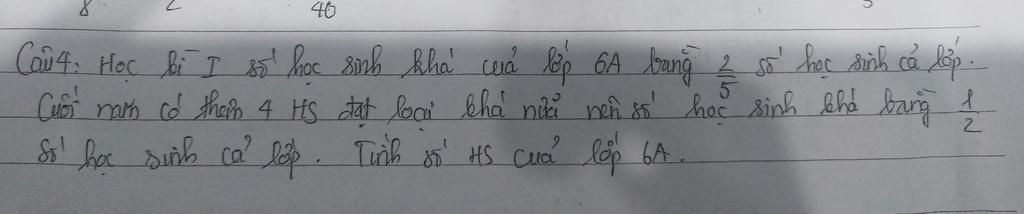 8 2 40 5
Câu 4: Học kì I số học sinh khá của lớp 6A bằng 2/5 số học sinh cả lớp.
Cuối năm có thêm 4 HS đạt loại khá nữa nên số học sinh khá bằng 1/2
Số học sinh cả lớp. Tính số HS của lớp 6A.